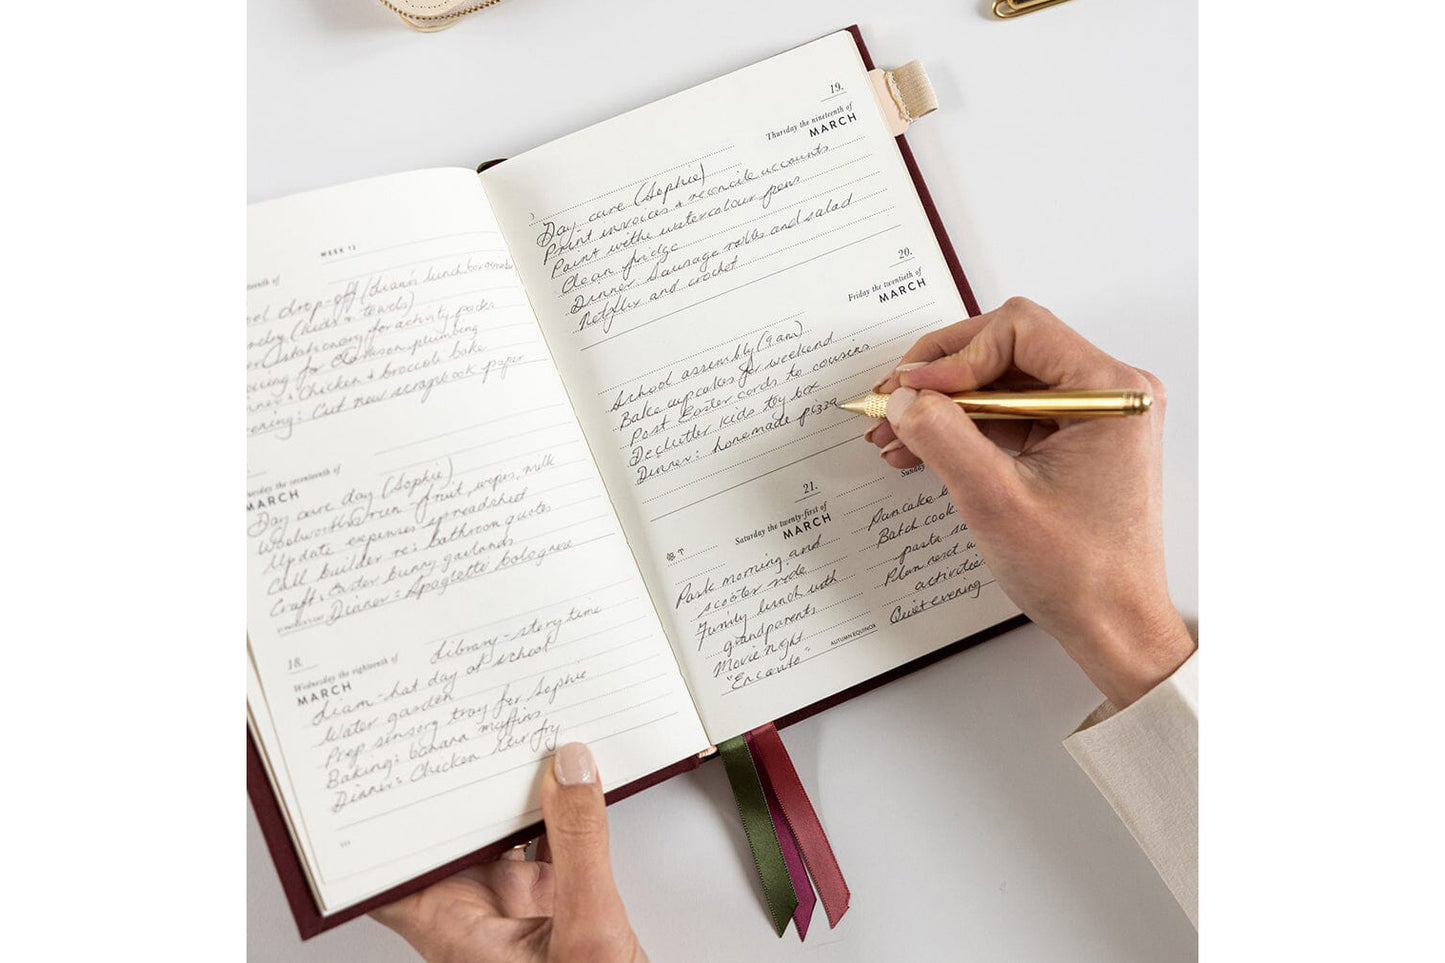 WEEK 12
drop-off (Liam's lunch box
(kids + towels)
stationary for activity packs
for plumbing
Chicken + broccoli bake
Cut new scrapbook paper
seventeenth of
MARCH
Day care day (Sophie)
Woolworths run: fruit, wipes, milk
Update expenses spreadsheet
Call builder re: bathroom quotes
Craft: Easter bunny garlands
Dinner: Spaghetti bolognese
18.
Wednesday the eighteenth of
MARCH
Library - story time
Liam - hat day at school
Water garden
Prep sensory tray for Sophie
Baking: banana muffins
Dinner: Chicken stir fry
19.
Thursday the nineteenth of
MARCH
Day care (Sophie)
Print invoices + reconcile accounts
Paint withe watercolour pens
Clean fridge
Dinner: Sausage and salad
Netflix and crochet
20.
Friday the twentieth of
MARCH
School assembly (9 am)
Bake cupcakes for weekend
Post Easter cards to cousins
Declutter kids toy box
Dinner: homemade pizza
21.
Saturday the twenty-first of
MARCH
T
Park morning and
scooter ride
Family lunch with
grandparents
Movie night
"Encanto"
AUTUMN EQUINOX
Sunday
Pancake b
Batch cook
pasta sa
Plan next w
activities
Quiet evening